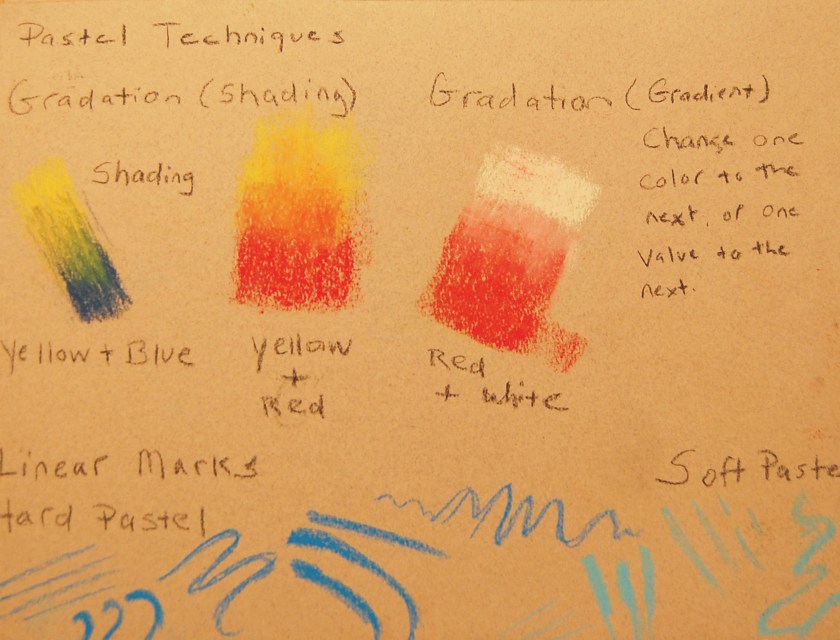 Pastel Techniques
Gradation (Shading)
Shading
Yellow + Blue
Yellow
+
Red
Gradation (Gradient)
Change one
color to the
next, or one
Value to the
next.
Red
+ white
Linear Marks
Hard Pastel
Soft Paste